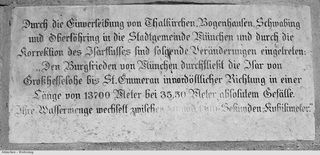 Durch die Einverleibung von Thalkirchen, Bogenhausen, Schwabing
und Oberföhring in die Stadtgemeinde München und durch die
Korrektion des Isarflusses sind folgende Veränderungen eingetreten:
„Den Burgfrieden von München durchfließt die Isar von
Großhesselohe bis St. Emmeran in nordöstlicher Richtung in einer
Länge von 13700 Meter bei 35,30 Meter absolutem Gefälle.
Ihre Wassermenge wechselt zwischen und Sekunden-Kubikmeter."